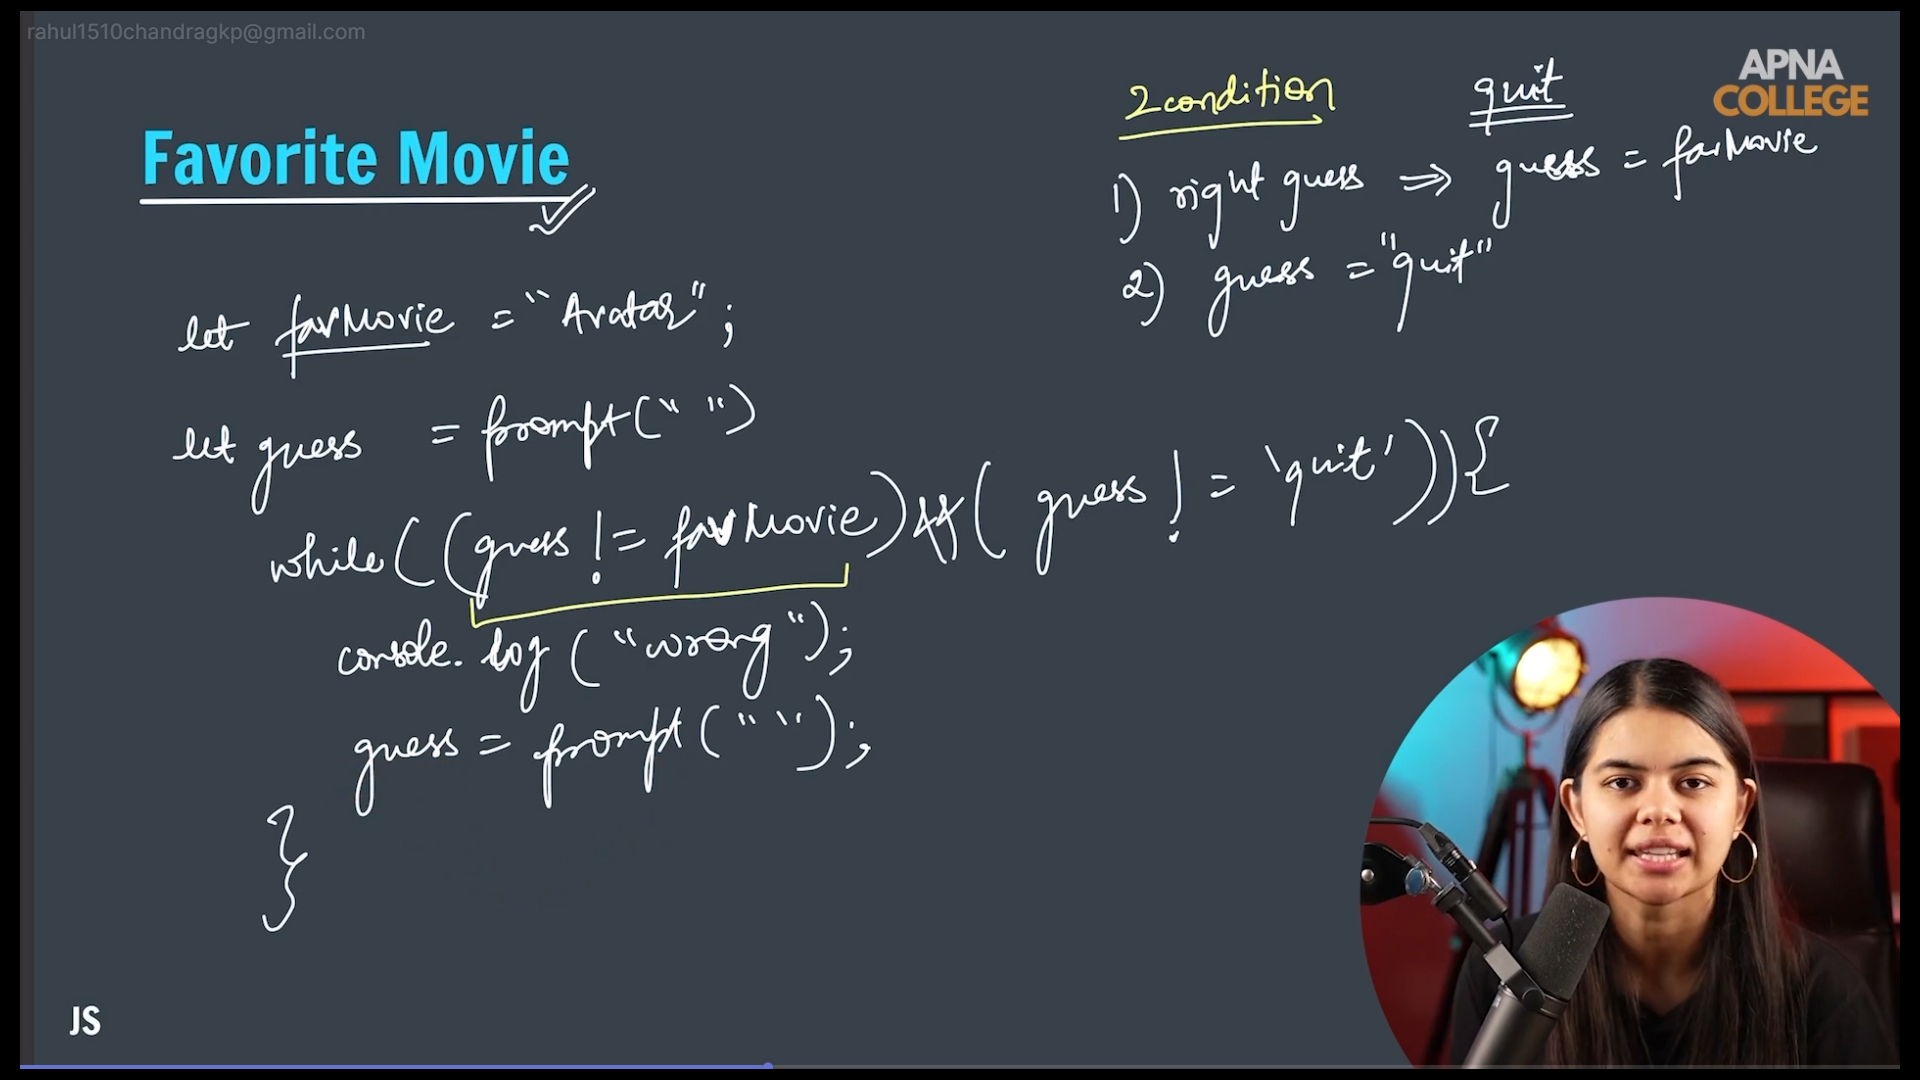 rahul1510chandragkp@gmail.com
APNA
COLLEGE
2 condition
quit
Favorite Movie
1) right guess ⇒ guess = favMovie
2) guess = "quit"
let favMovie = "Avatar";
let guess = prompt(" ")
while((guess != favMovie)&&( guess != 'quit')){
console.log("wrong");
guess = prompt(" ");
}
JS